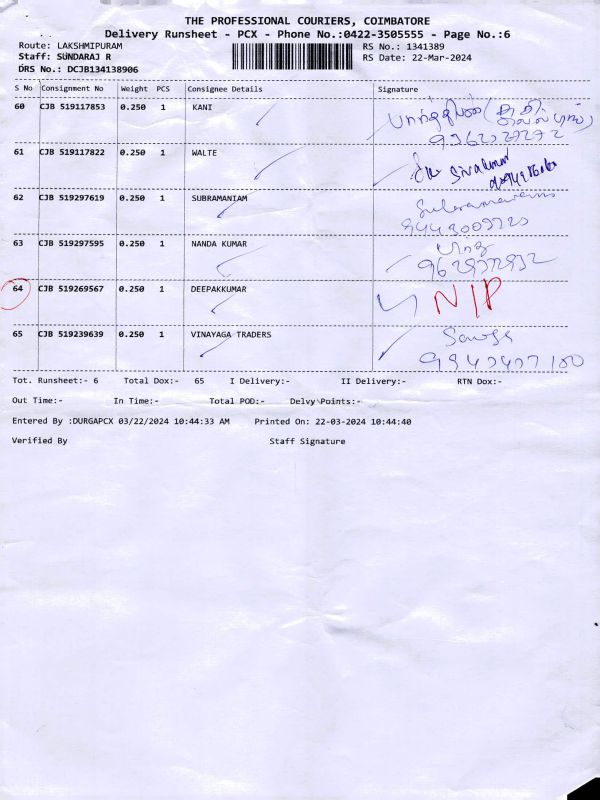 THE PROFESSIONAL COURIERS, COIMBATORE
Delivery Runsheet - PCX - Phone No.:0422-3505555 - Page No.:6
Route: LAKSHMIPURAM RS No.: 1341389
Staff: SUNDARAJ R RS Date: 22-Mar-2024
DRS No.: DCJB134138906
S No Consignment No Weight PCS Consignee Details Signature
60 CJB 519117853 0.250 1 KANI
61 CJB 519117822 0.250 1 WALTE
62 CJB 519297619 0.250 1 SUBRAMANIAM
63 CJB 519297595 0.250 1 NANDA KUMAR
64 CJB 519269567 0.250 1 DEEPAKKUMAR N/P
65 CJB 519239639 0.250 1 VINAYAGA TRADERS
Tot. Runsheet:- 6 Total Dox:- 65 I Delivery:- II Delivery:- RTN Dox:-
Out Time:- In Time:- Total POD:- Delvy Points:-
Entered By :DURGAPCX 03/22/2024 10:44:33 AM Printed On: 22-03-2024 10:44:40
Verified By Staff Signature